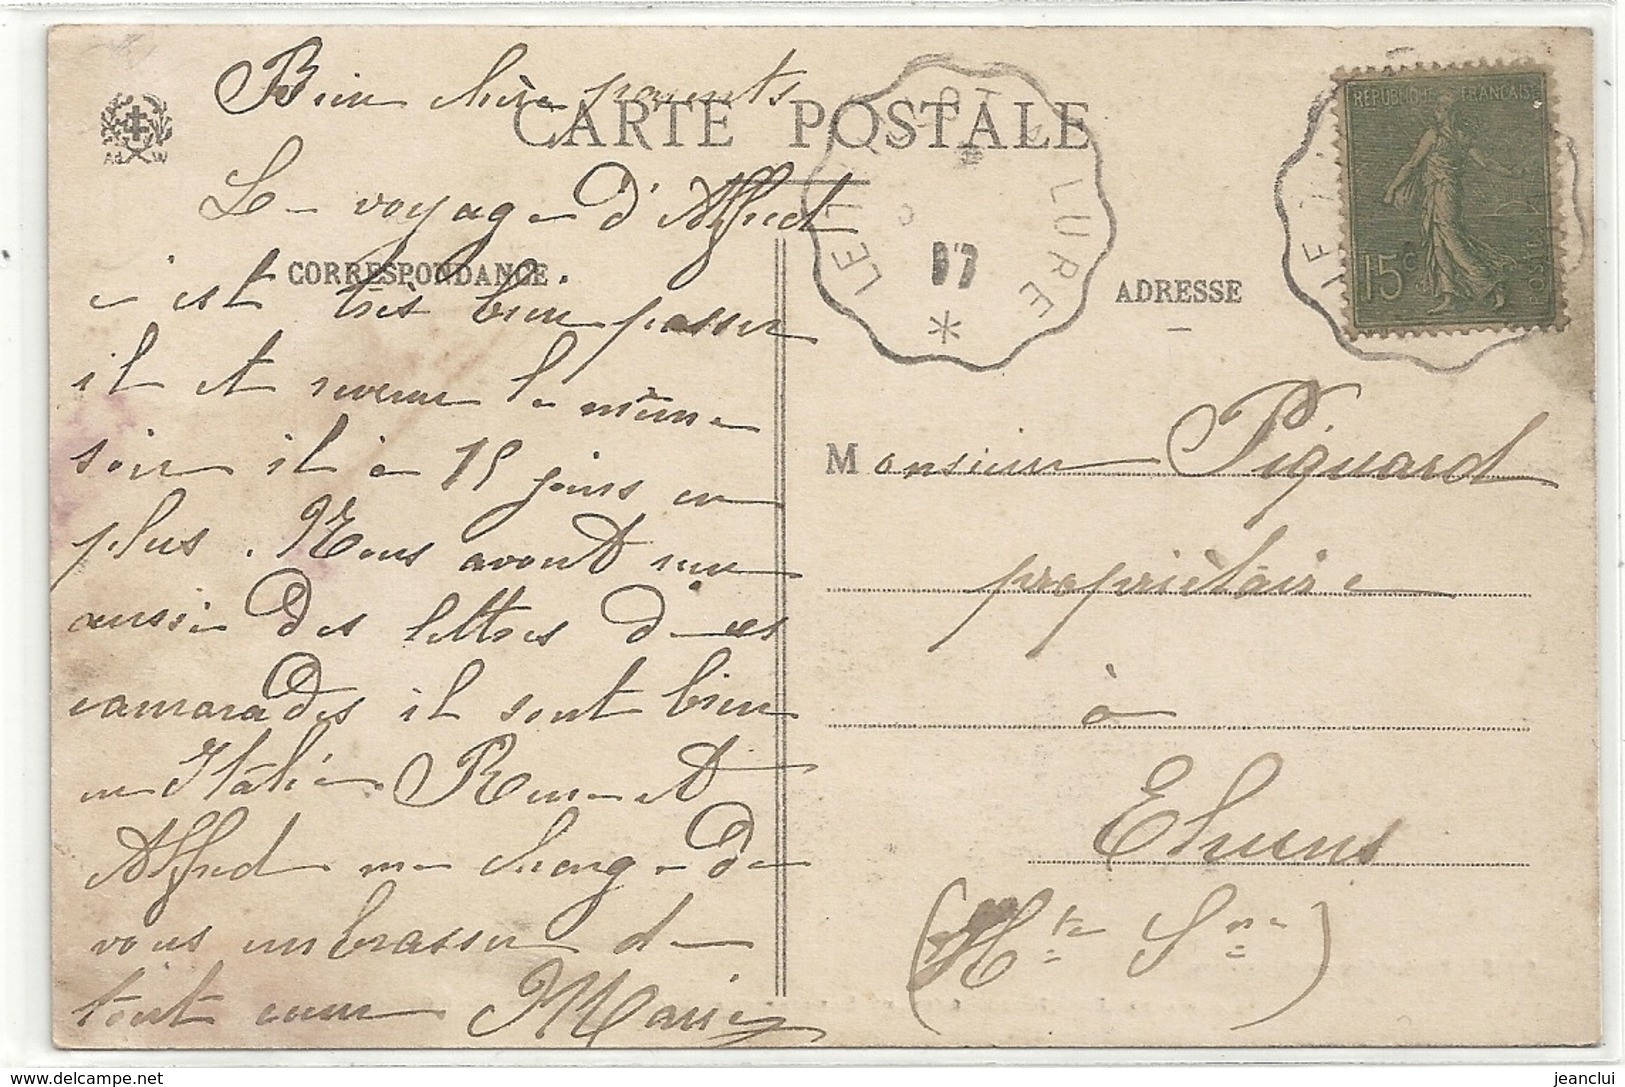 Bien chère parents
CARTE POSTALE
Le voyage d'Alfred
CORRESPONDANCE
c'est très bien passer
il et revenu le même
soir il à 15 jours en
plus. Nous avont reçu
aussi des lettres de ces
camarades il sont bien
en Italie René et
Alfred me charge de
vous embrasser de
tout cœur Marie
LE T LOT LURE
17
*
ADRESSE
REPUBLIQUE FRANÇAISE
15c
POSTES
LE
Monsieur Piguard
propriètaire
à
Ehuns
(Hte Sne)
jeanclui